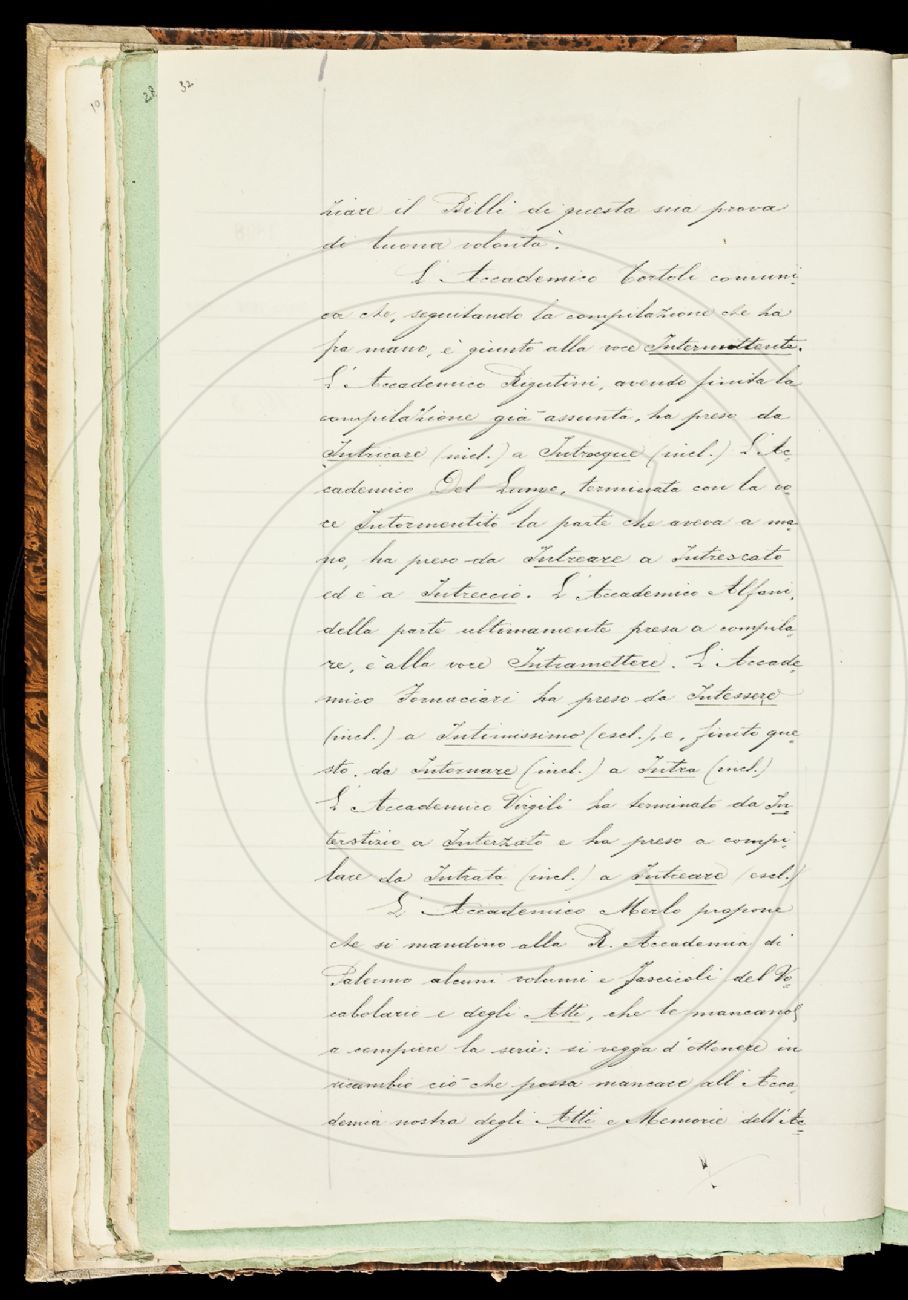 10 28 32
ziare il Billi di questa sua prova
di buona volontà.
L'Accademico Tortoli comuni-
ca che, seguitando la compilazione che ha
fra mano, è giunto alla voce Intermittente.
L'Accademico Rigutini, avendo finita la
compilazione già assunta, ha preso da
Intricare (incl.) a Introque (incl.) L'Ac-
cademico Del Lungo, terminata con la vo-
ce Intormentito la parte che aveva a ma-
no, ha preso da Intreare a Intrescato
ed è a Intreccio. L'Accademico Alfani,
della parte ultimamente presa a compila-
re, è alla voce Intramettere. L'Accade-
mico Fornaciari ha preso da Intessere
(incl.) a Intimissimo (escl.), e, finito que-
sto, da Intornare (incl.) a Intra (incl.)
L'Accademico Virgili ha terminato da In-
terstizio a Interzato e ha preso a compi-
lare da Intrata (incl.) a Intreare (escl.)
L'Accademico Merlo propone
che si mandino alla R. Accademia di
Palermo alcuni volumi e fascicoli del Vo-
cabolario e degli Atti, che le mancano
a compiere la serie: si vegga d'ottenere in
ricambio ciò che possa mancare all'Acca-
demia nostra degli Atti e Memorie dell'Ac-